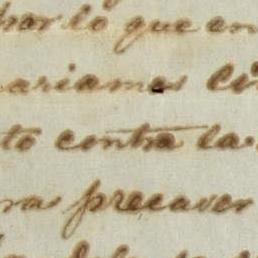 por lo que en
ariamos
to contra la
ras precaver